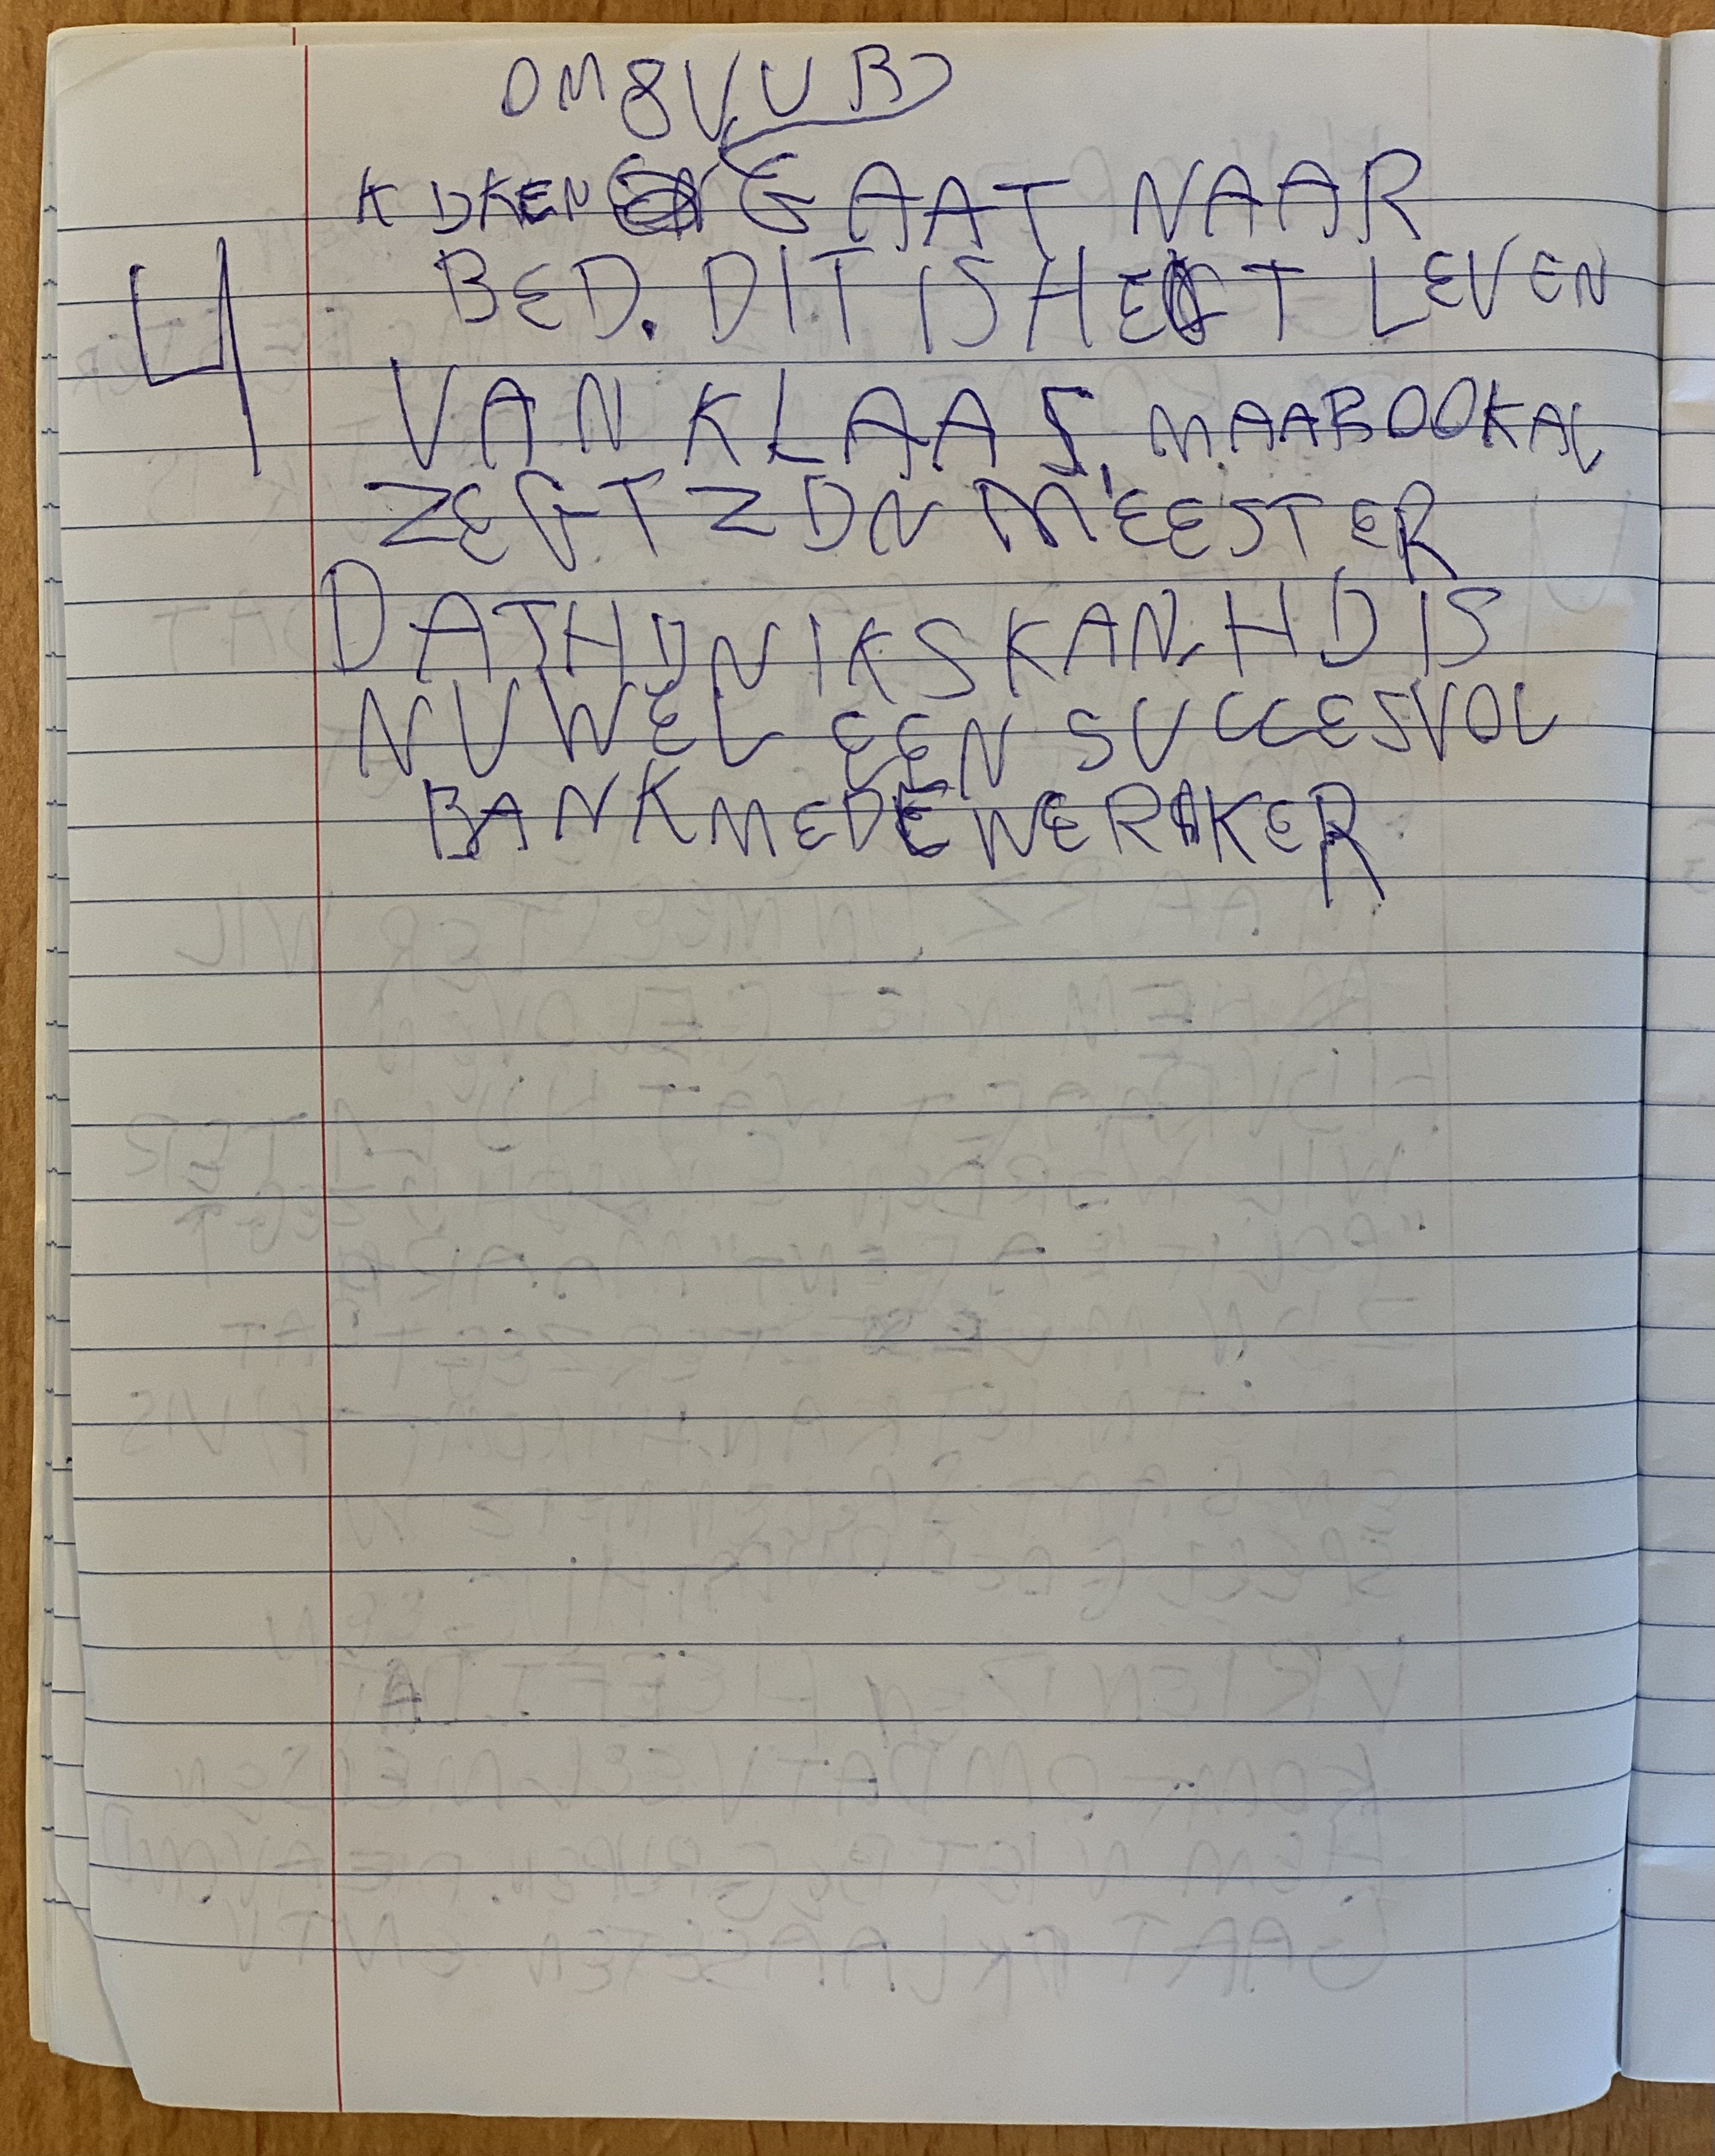 OM 8 UUR
KIJKEN GAAT NAAR
BED. DIT IS HET LEVEN
4
VAN KLAAS, MAAR OOK AL
ZEGT ZIJN MEESTER
DAT HIJ NIKS KAN, HIJ IS
NU WEL EEN SUCCESVOL
BANKMEDEWERKER